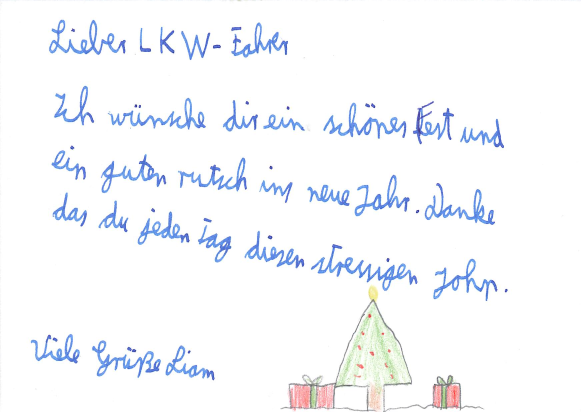 Lieber LKW-Fahrer
Ich wünsche dir ein schönes Fest und
ein guten rutsch ins neue Jahr. Danke
das du jeden Tag diesen stressigen
Viele Grüße Liam